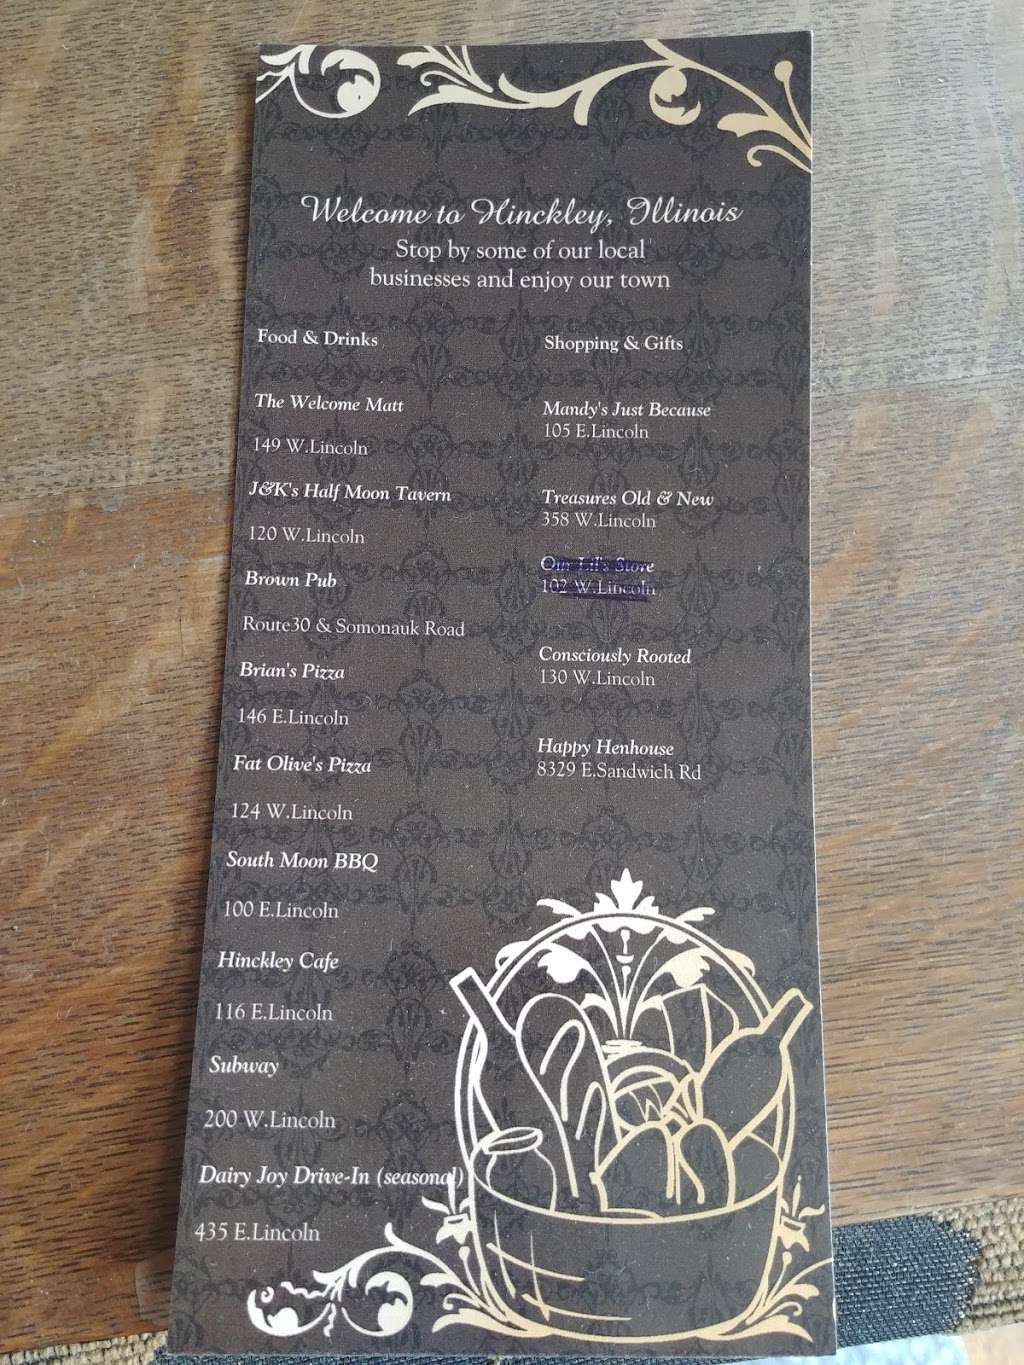 Welcome to Hinckley, Illinois
Stop by some of our local
businesses and enjoy our town
Food & Drinks
The Welcome Matt
149 W.Lincoln
J&K's Half Moon Tavern
120 W.Lincoln
Brown Pub
Route30 & Somonauk Road
Brian's Pizza
146 E.Lincoln
Fat Olive's Pizza
124 W.Lincoln
South Moon BBQ
100 E.Lincoln
Hinckley Cafe
116 E.Lincoln
Subway
200 W.Lincoln
Dairy Joy Drive-In (seasonal)
435 E.Lincoln
Shopping & Gifts
Mandy's Just Because
105 E.Lincoln
Treasures Old & New
358 W.Lincoln
Our Lil's Store
102 W.Lincoln
Consciously Rooted
130 W.Lincoln
Happy Henhouse
8329 E.Sandwich Rd